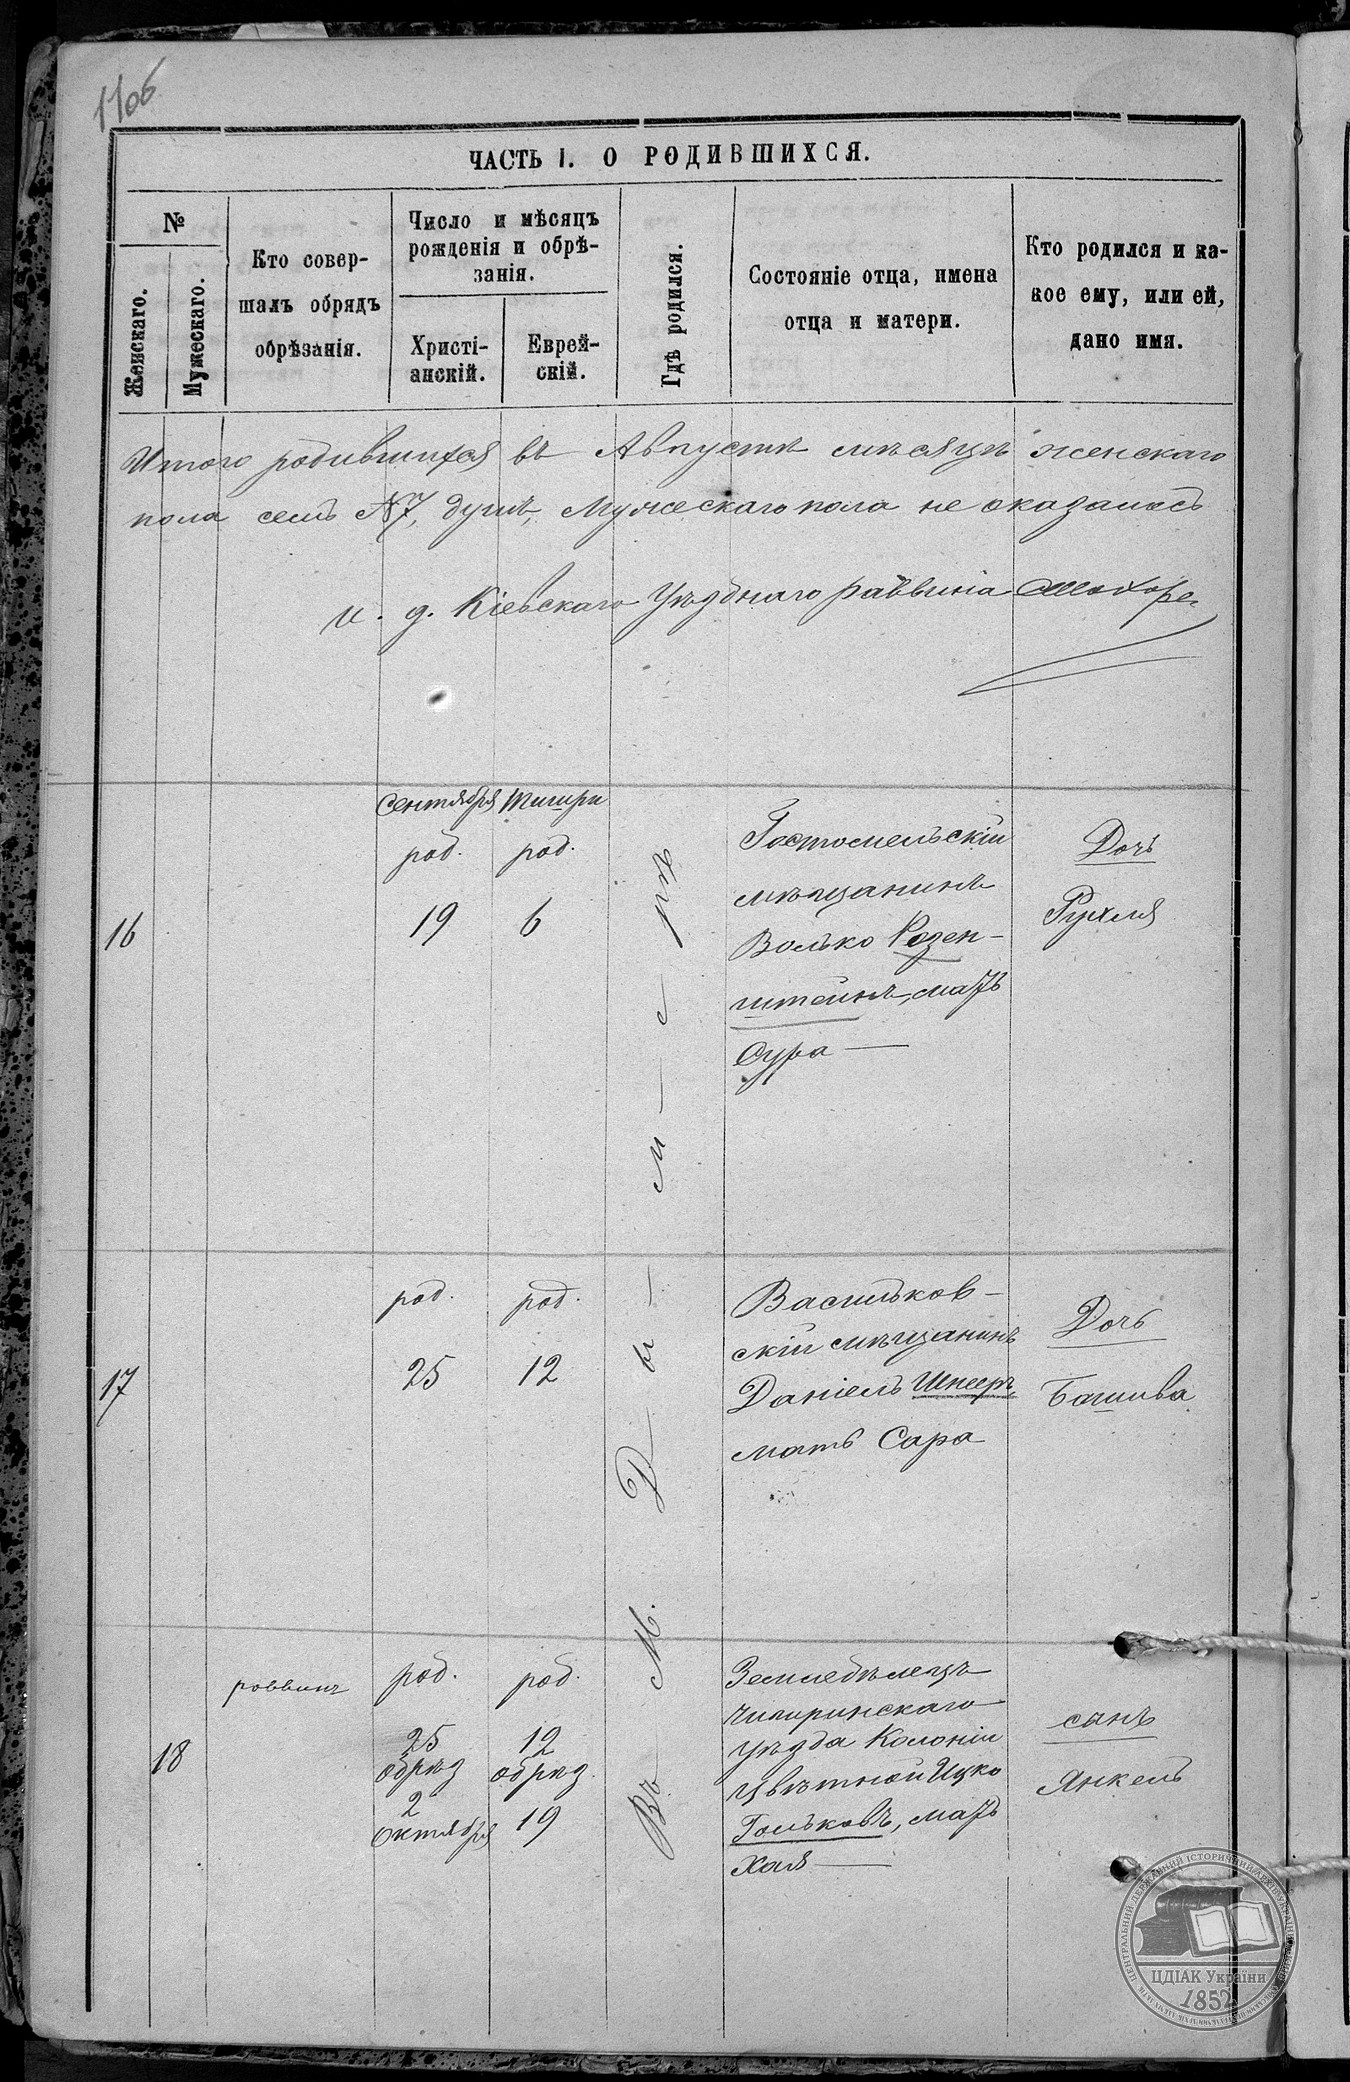 110б
ЧАСТЬ I. О РОДИВШИХСЯ.
№
Женскаго.
Мужескаго.
Кто совер-
шалъ обрядъ
обрѣзанія.
Число и мѣсяцъ
рожденія и обрѣ-
занія.
Христі-
анскій.
Еврей-
скій.
Гдѣ родился.
Состояніе отца, имена
отца и матери.
Кто родился и ка-
кое ему, или ей,
дано имя.
Итого родившихся въ Августѣ мѣсяцѣ женскаго
пола семь №7, душъ, Мужескаго пола не оказалось
и. д. Кіевскаго Уѣзднаго раввина
Въ М. Дымерѣ
Сентября Тишри
род. род.
16
19 6
Гостомельскій
мѣщанинъ
Волько Розен-
штейнъ, мать
Сура
Дочь
Рухля
17
род. род.
25 12
Васильков-
скій мѣщанинъ
Даніель Шнееръ,
мать Сара
Дочь
Башива
18
раввинъ
род. род.
25 12
обрѣз обрѣз.
2
Октября 19
Земледѣлецъ
Чигиринскаго
уѣзда Колоніи
Цвѣтной Ицко
Гольковъ, мать
Хая
сынъ
Янкель
ЦЕНТРАЛЬНИЙ ДЕРЖАВНИЙ ІСТОРИЧНИЙ АРХІВ УКРАЇНИ
ЦДІАК України
1852